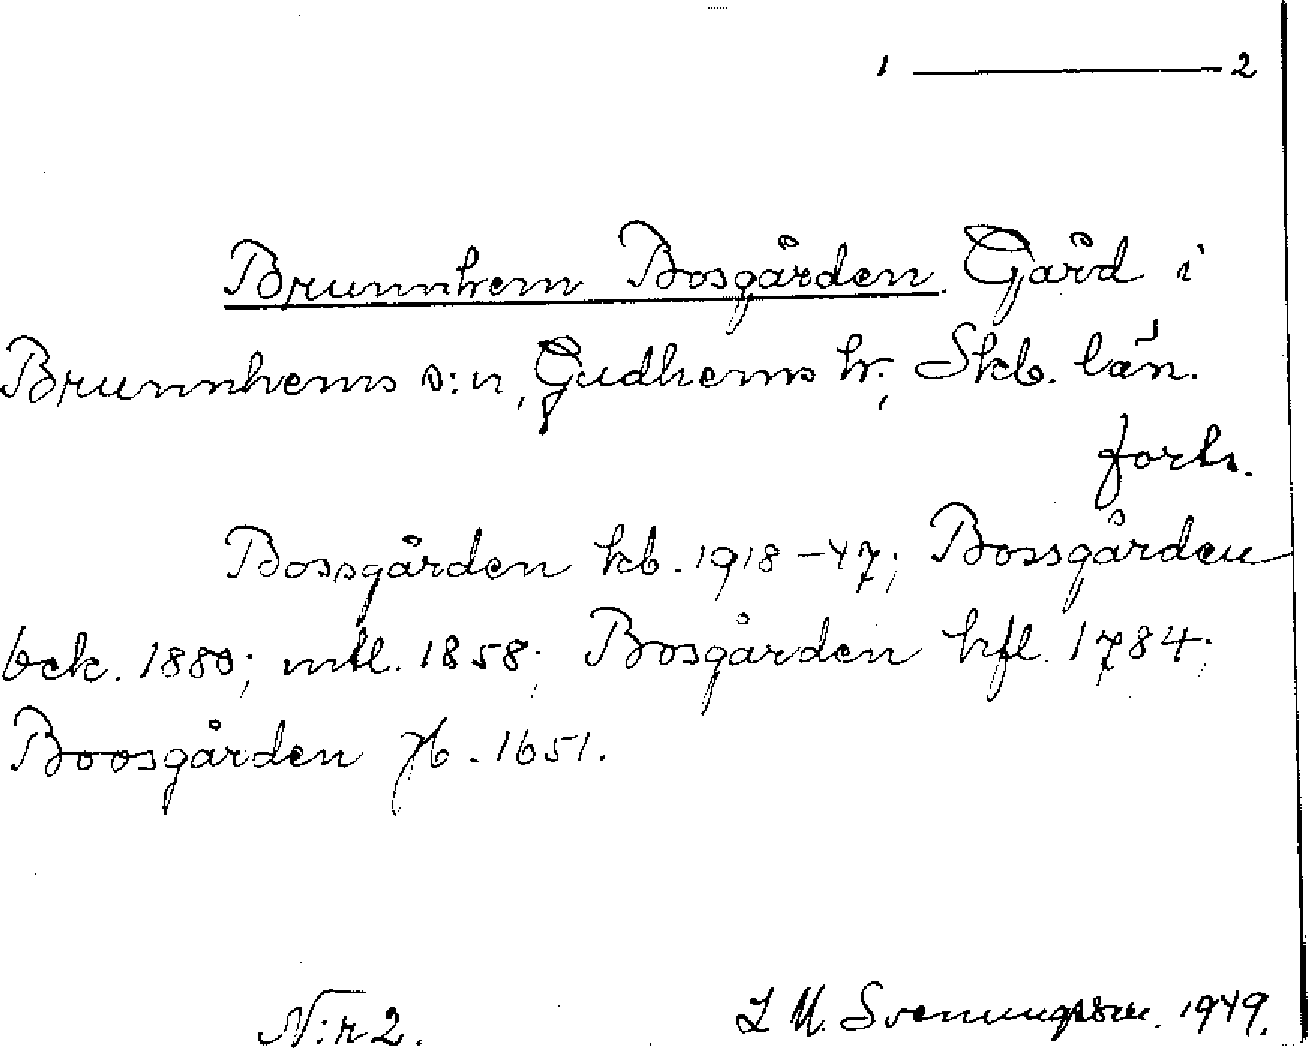 1 ——— 2
Brunnhem Bosgården. Gård i
Brunnhems s:n, Gudhems hr., Skb. län.
forts.
Bossgården kb. 1918-47; Bossgården
bck. 1880; mtl. 1858; Bosgården hfl. 1784;
Boosgården jb. 1651.
N:r 2. L M. Svenungsson. 1949.